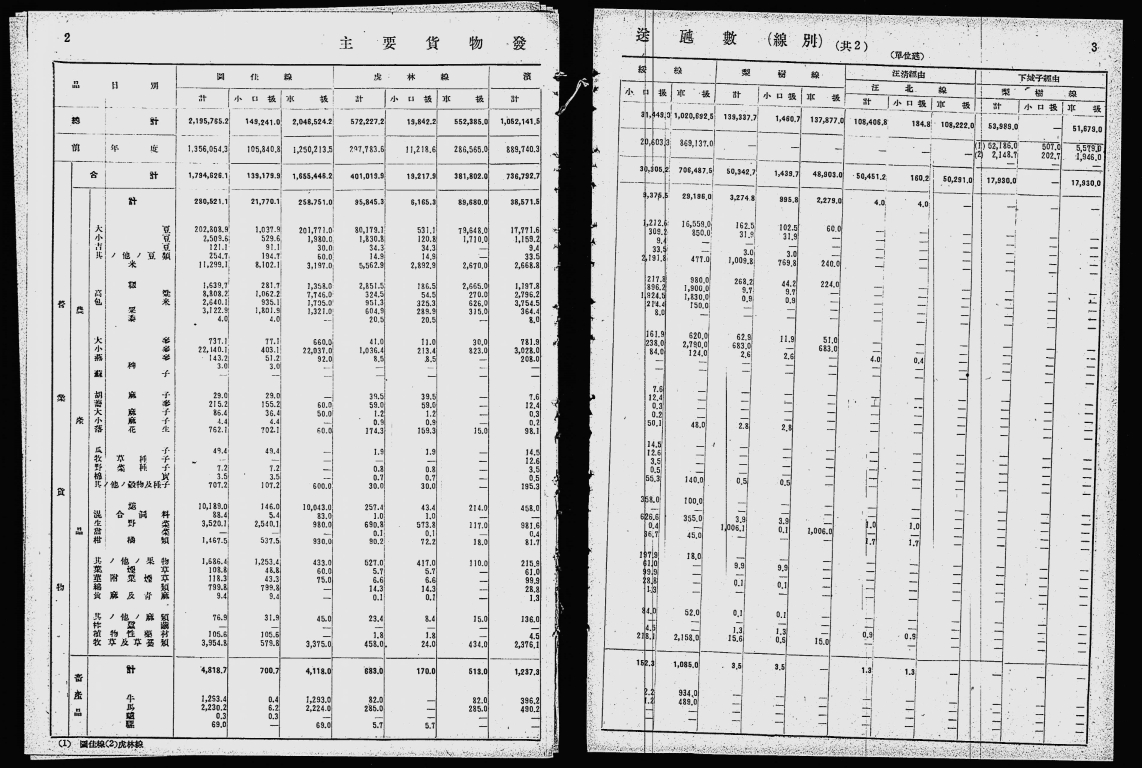 2
主要貨物發
品目別
圖佳線
虎林線
濱
計 小口扱 車扱 計 小口扱 車扱 計
總計 2,195,765.2 149,241.0 2,046,524.2 572,227.2 19,842.2 552,385.0 1,052,141.5
前年度 1,356,054.3 105,840.8 1,250,213.5 297,783.6 11,218.6 286,565.0 889,740.3
合計 1,794,626.1 139,179.9 1,655,446.2 401,019.9 19,217.9 381,802.0 736,792.7
計 280,521.1 21,770.1 258,751.0 95,845.3 6,165.3 89,680.0 38,571.5
大豆 202,808.9 1,037.9 201,771.0 80,179.1 531.1 79,648.0 17,771.6
小豆 2,509.6 529.6 1,980.0 1,830.8 120.8 1,710.0 1,159.2
吉豆 121.1 91.1 30.0 34.3 34.3 — 9.4
其ノ他ノ豆類 254.7 194.7 60.0 14.9 14.9 — 33.5
米 11,299.1 8,102.1 3,197.0 5,562.9 2,892.9 2,670.0 2,668.8
1,639.7 281.7 1,358.0 2,851.5 186.5 2,665.0 1,197.8
高粱 8,808.2 1,062.2 7,746.0 324.5 54.5 270.0 2,796.2
包米 2,640.1 935.1 1,705.0 951.3 325.3 626.0 3,754.5
粟 3,122.9 1,801.9 1,321.0 604.9 289.9 315.0 364.4
黍 4.0 4.0 — 20.5 20.5 — 8.0
大麥 737.1 77.1 660.0 41.0 11.0 30.0 781.9
小麥 22,140.1 403.1 22,037.0 1,036.4 213.4 823.0 3,028.0
燕麥 143.2 51.2 92.0 8.5 8.5 — 208.0
稗 3.0 3.0 — — — — —
蘇子 — — — — — — —
胡麻子 29.0 29.0 — 39.5 39.5 — 7.6
蕎麥 215.2 155.2 60.0 59.0 59.0 — 12.4
大麻子 86.4 36.4 50.0 1.2 1.2 — 0.3
小麻子 4.4 4.4 — 0.9 0.9 — 0.2
落花生 762.1 702.1 60.0 174.3 159.3 15.0 98.1
瓜子 49.4 49.4 — 1.9 1.9 — 14.5
牧草種子 — — — — — — 12.6
野菜種子 7.2 7.2 — 0.8 0.8 — 3.5
棉實 3.5 3.5 — 0.7 0.7 — 0.5
其ノ他ノ穀物及種子 707.2 107.2 600.0 30.0 30.0 — 195.3
10,189.0 146.0 10,043.0 257.4 43.4 214.0 458.0
混合飼料 88.4 5.4 83.0 1.0 1.0 — —
生野菜 3,520.1 2,540.1 980.0 690.8 573.8 117.0 981.6
甜菜 — — — 0.1 0.1 — 0.4
柑橘類 1,467.5 537.5 930.0 90.2 72.2 18.0 81.7
其ノ他ノ果物 1,686.4 1,253.4 433.0 527.0 417.0 110.0 215.9
葉煙草 108.8 48.8 60.0 5.7 5.7 — 61.0
莖附葉煙草 118.3 43.3 75.0 6.6 6.6 — 99.9
綿類 799.8 799.8 — 14.3 14.3 — 28.8
黃麻及青麻 9.4 9.4 — 0.1 0.1 — 1.3
其ノ他ノ麻類 76.9 31.9 45.0 23.4 8.4 15.0 136.0
柞蠶繭 — — — — — — —
植物性藥材 105.6 105.6 — 1.8 1.8 — 4.5
牧草及草藁類 3,954.8 579.8 3,375.0 458.0 24.0 434.0 2,376.1
計 4,818.7 700.7 4,118.0 683.0 170.0 513.0 1,237.3
牛 1,293.4 0.4 1,293.0 82.0 — 82.0 396.2
馬 2,230.2 6.2 2,224.0 285.0 — 285.0 490.2
驢 0.3 0.3 — — — — —
騾 69.0 — 69.0 5.7 5.7 — —
畜
業
貨
物
農
產
品
畜
產
品
(1) 圖佳線(2)虎林線
送噸數(線別)(共2)
(單位瓲)
3
綏線
梨樹線
汪清經由
汪北線
下城子經由
梨樹線
小口扱 車扱 計 小口扱 車扱 計 小口扱 車扱 計 小口扱 車扱
31,448.3 1,020,692.5 139,337.7 1,460.7 137,877.0 108,406.8 184.8 108,222.0 53,989.0 — 51,679.0
20,603.3 869,137.0 — — — — — — (1) 52,186.0 507.0 5,579.0
(2) 2,148.7 202.7 1,946.0
30,305.2 706,487.5 50,342.7 1,439.7 48,903.0 50,451.2 160.2 50,291.0 17,930.0 — 17,930.0
9,375.5 29,186.0 3,274.8 995.8 2,279.0 4.0 4.0 — — — —
1,212.6 16,559.0 162.5 102.5 60.0
309.2 850.0 31.9 31.9 —
9.4 — — — —
33.5 — 3.0 3.0 —
2,191.8 477.0 1,009.8 769.8 240.0
217.8 980.0 268.2 44.2 224.0
896.2 1,900.0 9.7 9.7 —
1,924.5 1,830.0 0.9 0.9 —
214.4 150.0 — — —
8.0 — — — —
161.9 620.0 62.9 11.9 51.0
238.0 2,790.0 683.0 — 683.0
84.0 124.0 2.6 2.6 — 4.0 0.4
7.6
12.4
0.3
0.2
50.1 48.0 2.8 2.8 —
14.5
12.6
3.5
0.5
55.3 140.0 0.5 0.5 —
358.0 100.0 — — —
626.6 355.0 3.9 3.9 — 1.0 1.0
0.4 — 1,006.1 0.1 1,006.0
36.7 45.0 — — — 1.7 1.7
197.9 18.0 — — —
61.0 — 9.9 9.9 —
99.9
28.8 — 0.1 0.1 —
1.3
84.0 52.0 0.1 0.1 —
4.5 — 1.3 1.3 —
218.1 2,158.0 15.6 0.6 15.0 0.9 0.9
152.3 1,085.0 3.5 3.5 — 1.3 1.3
2.2 934.0
1.2 489.0